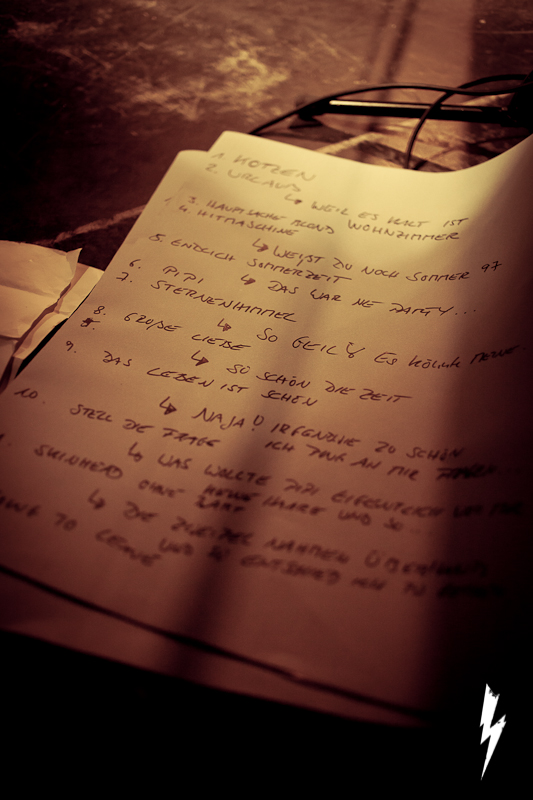 1. KOTZEN
2. URLAUB
↳ WEIL ES KALT IST
3. HAUPTSACHE BLOND WOHNZIMMER
4. HITMASCHINE
↳ WEIßT DU NOCH SOMMER 97
5. ENDLICH SOMMERZEIT
↳ DAS WAR NE PARTY...
6. PIPI
7. STERNENHIMMEL
↳ SO GEIL ES
8. GROßE LIEBE
↳ SO SCHÖN DIE ZEIT
9. DAS LEBEN IST SCHÖN
↳ NAJA! IRGENDWIE ZU SCHÖN
10. STELL DIE FRAGE ICH AN MIR
↳ WAS WOLLTE PIPI EIGENTLICH VON
SKINHEAD OHNE HAARE UND SO...
↳ DIE ZWEIFEL NAHMEN ÜBERHAND
UND SO ENTSCHIED ICH ZU
TO LEAVE